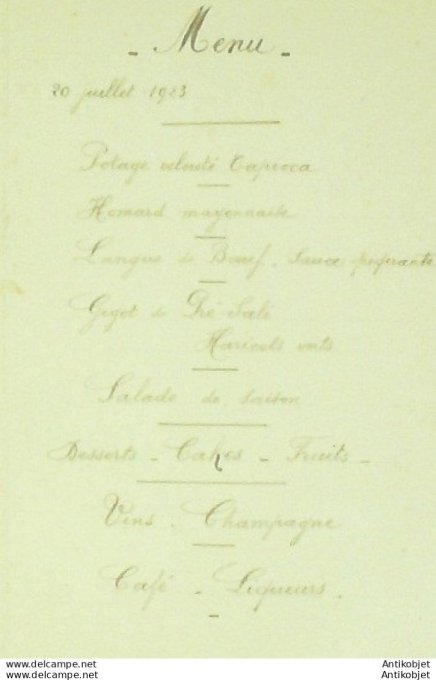 - Menu -
20 juillet 1923
Potage velouté Tapioca
Homard mayonnaise
Langue de Bœuf. Sauce piquante
Gigot de Pré-Salé
Haricots verts
Salade de saison
Desserts - Cakes - Fruits -
Vins - Champagne
Café - Liqueurs.
Antikobjet
www.delcampe.net Antikobjet